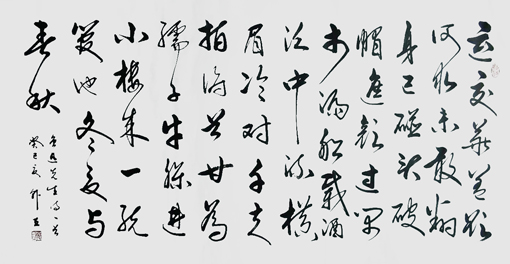 运交華盖欲
何求未敢翻
身已碰头破
帽遮颜过闹
市漏船载酒
泛中流横
眉冷对千夫
指俯首甘为
孺子牛躲进
小楼成一统
管他冬夏与
春秋
鲁迅先生诗一首
癸巳夏